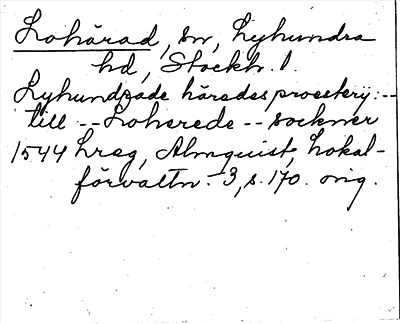 Lohärad, sn, Lyhundra
hd, Stockh. l.
Lyhundrade häredes proesterij: --
till -- Loherede -- sockner
1544 Lreg, Almquist, Lokal-
förvaltn. 3, s. 170. orig.